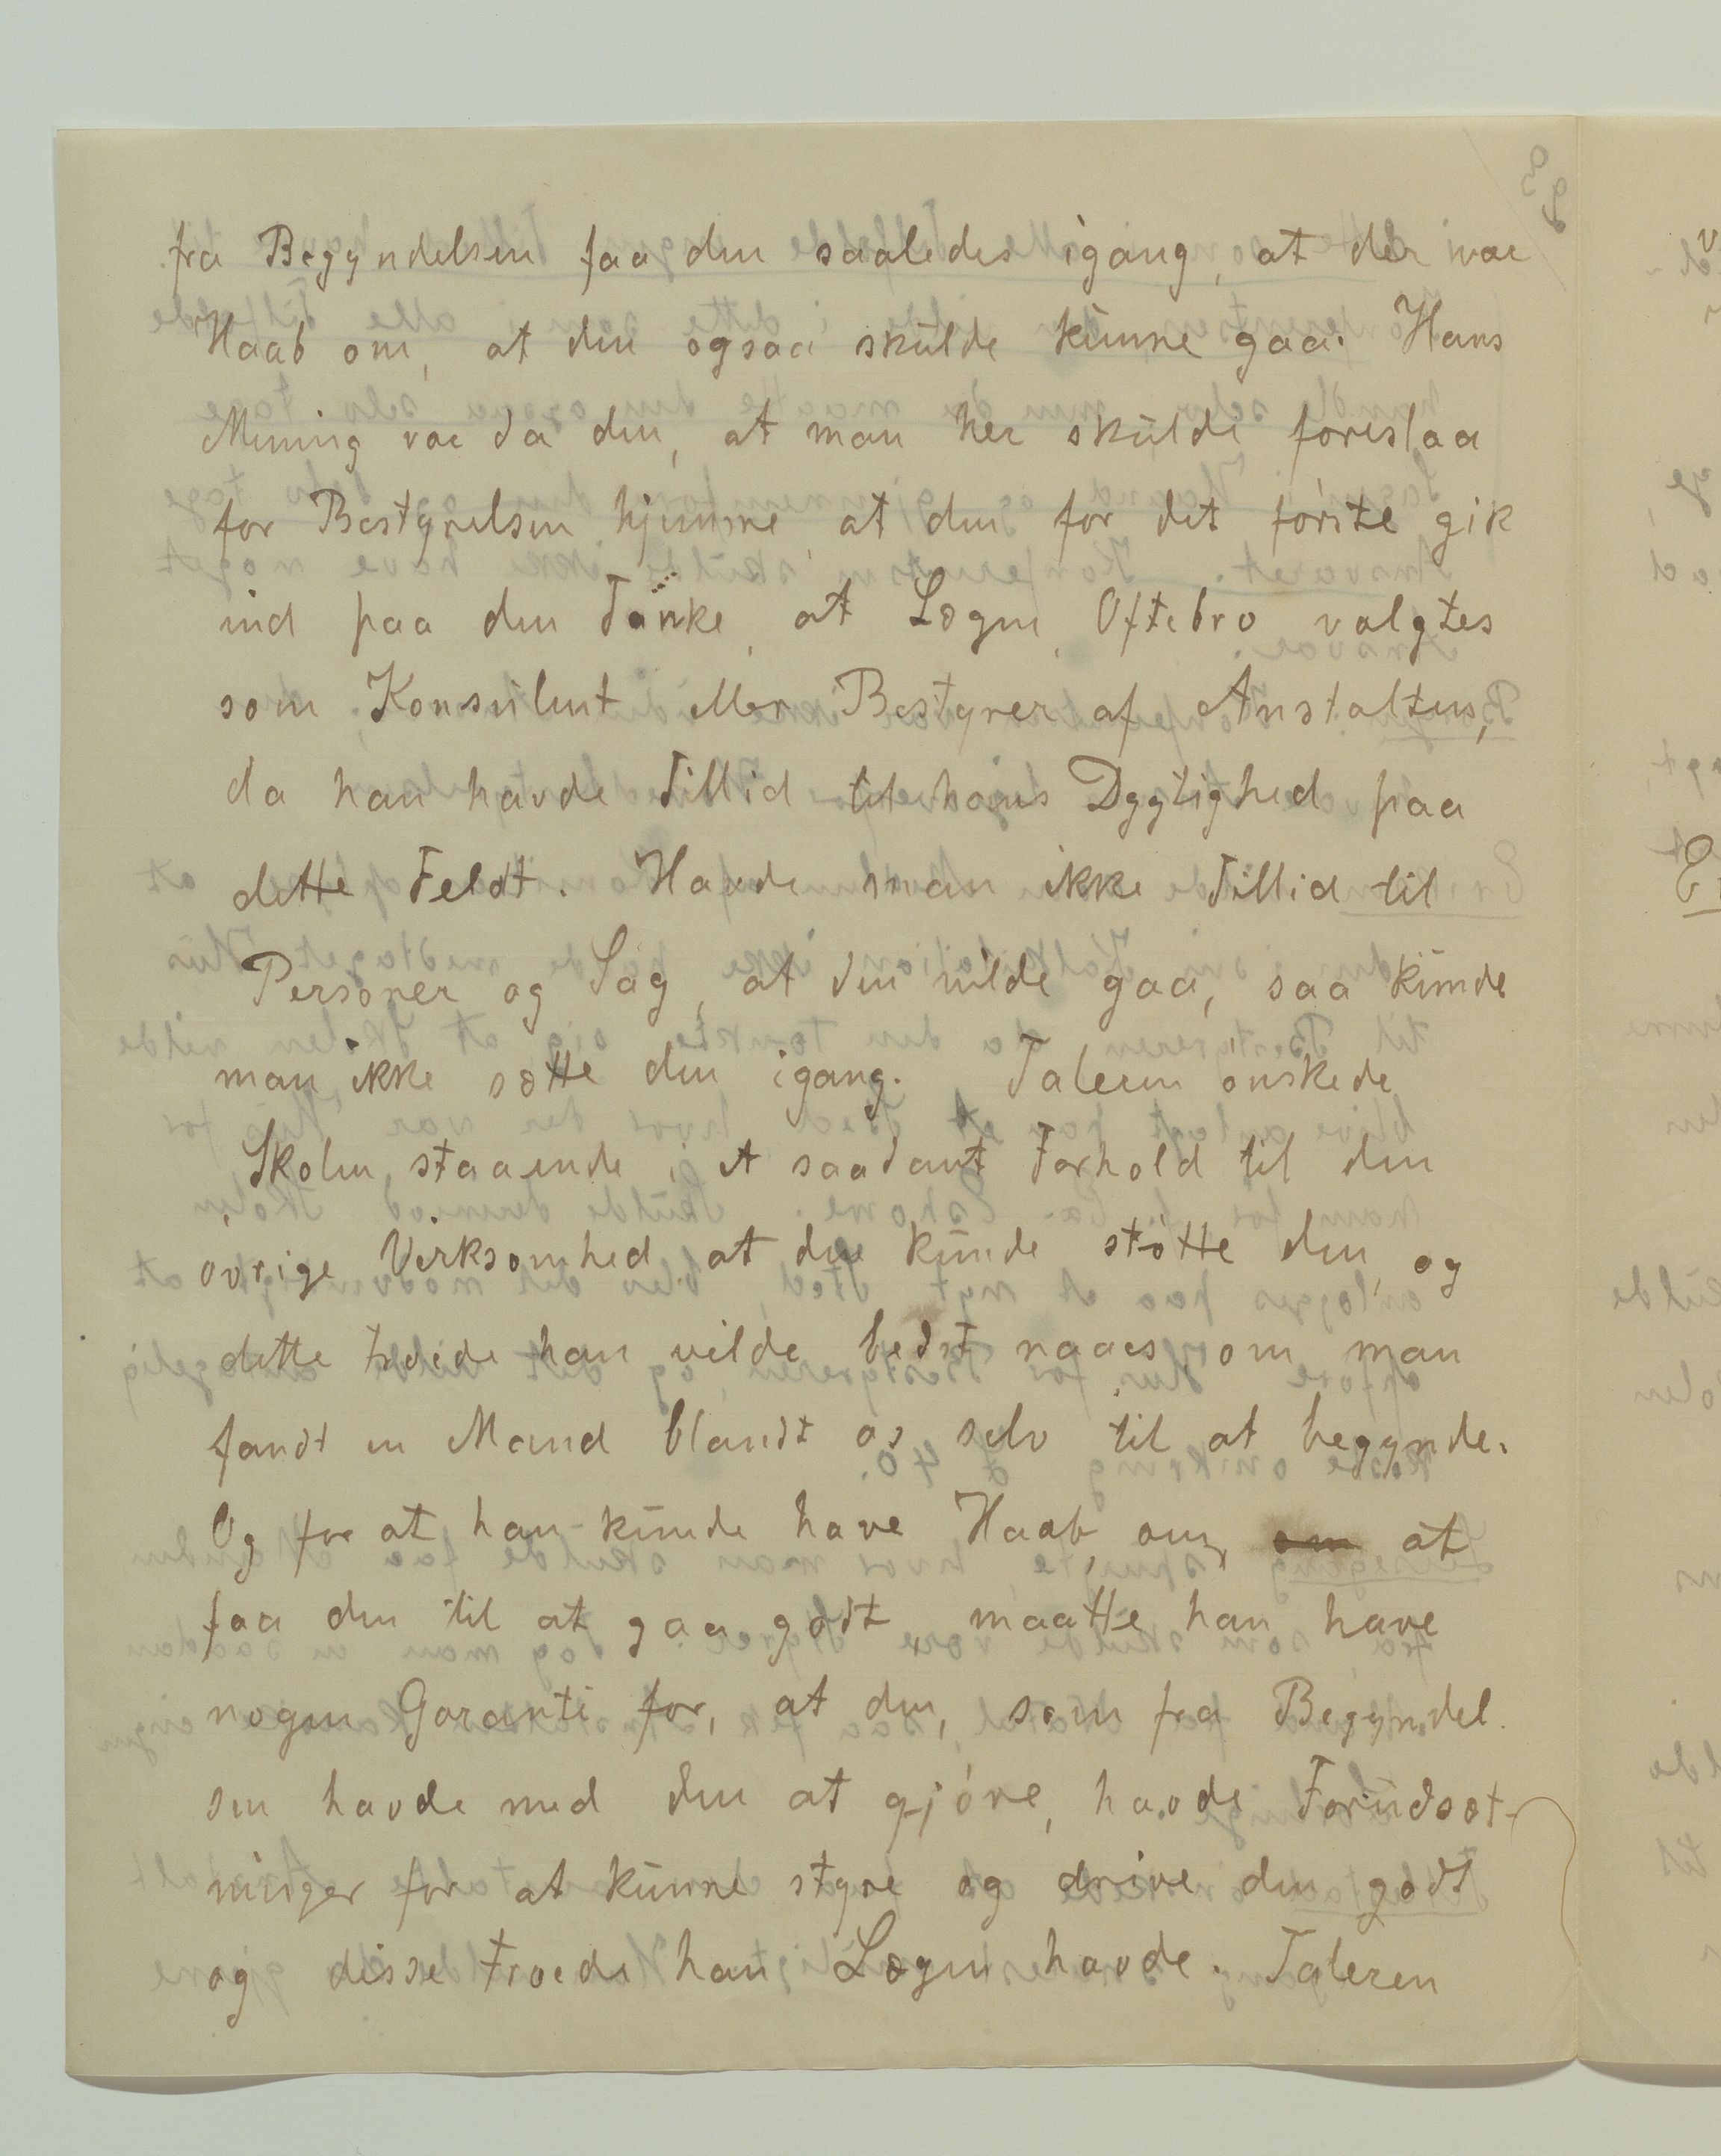 fra Begyndelsen faa den saaledes igang, at der var
Haab om, at den ogsaa skulde kunne gaa. Hans
Mening var da den, at man her skulde foreslaa
for Bestyrelsen hjemme, at den for det første gik
ind paa den Tanke, at Lægen, Oftebro valgtes
som Konsulent eller Bestyrer af Anstalten,
da han havde Tillid til hans Dygtighed paa
dette Feldt. Havde man ikke Tillid til
Personer og Sag, at den vilde gaa, saa kunde
man ikke sætte den igang. Taleren ønskede
Skolen staaende i et saadant Forhold til den
øvrige Virksomhed, at den kunde støtte den, og
dette troede han vilde bedst naaes, om man
fandt en Mand blandt os selv til at begynde.
Og for at han kunde have Haab om, om at
faa den til at gaa godt maatte han have
nogen Garanti for, at den, som fra Begyndel-
sen havde med den at gjøre, havde Forudsæt-
ninger for at kunne styre og drive den godt
og disse troede han Lægen havde. Taleren